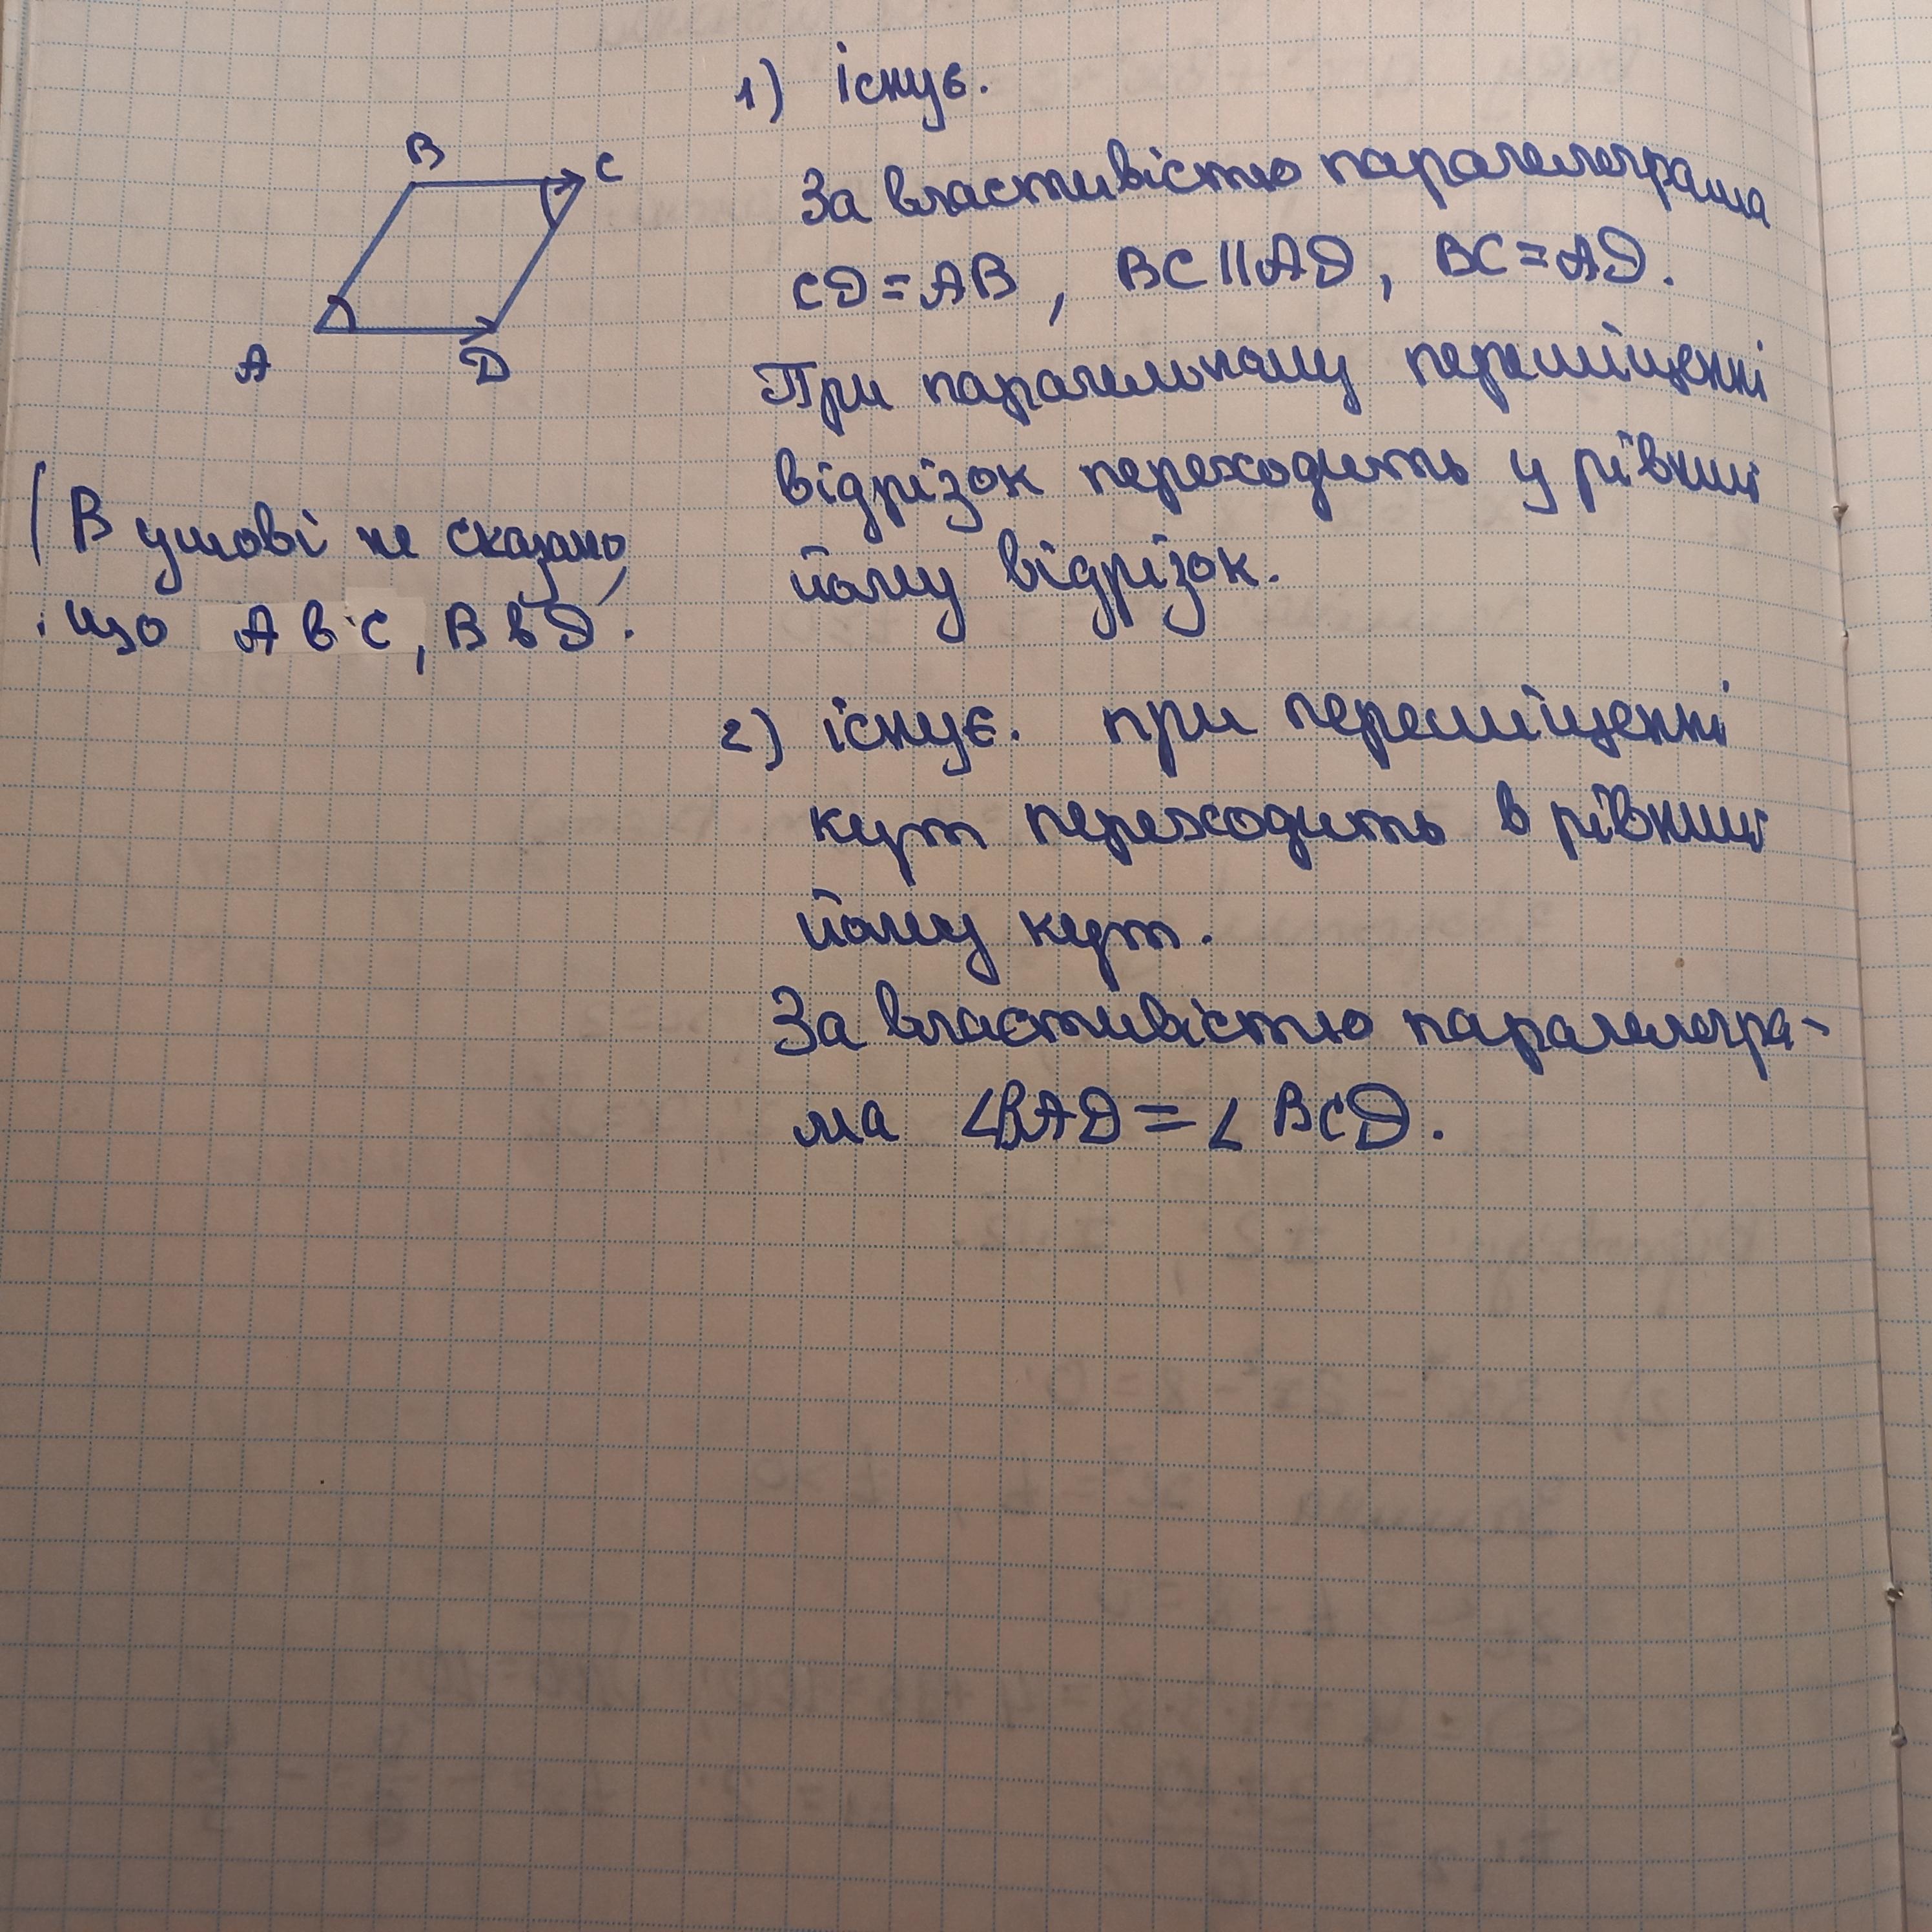 1) існує.
B
C
A
D
За властивістю паралелограма
CD = AB, BC || AD, BC = AD.
При паралельному переміщенні
відрізок переходить у рівний
йому відрізок.
(В умові не сказано,
що A в C, B в D.
2) існує. при переміщенні
кут переходить в рівний
йому кут.
За властивістю паралелогра-
ма ∠BAD = ∠BCD.